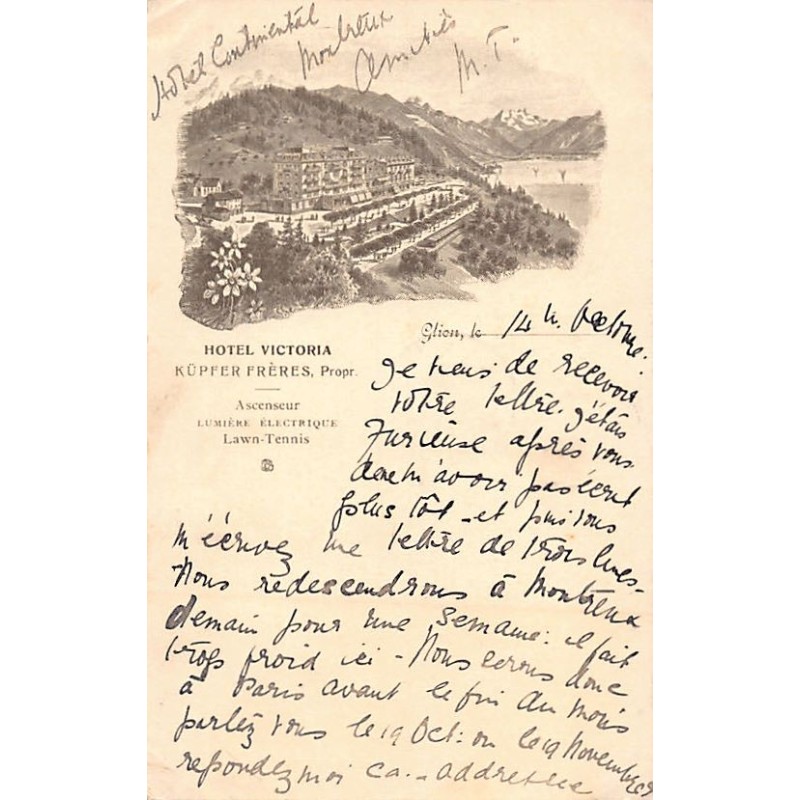 Hotel Continental
Montreux
Amitiés
M. T.
Glion, le 14 h. Octobre.
HOTEL VICTORIA
KÜPFER FRÈRES, Propr.
Ascenseur
LUMIÈRE ÉLECTRIQUE
Lawn-Tennis
Je viens de recevoir
votre lettre. j'étais
furieuse après vous
de ne m'avoir pas écrit
plus tôt - et puis vous
m'écrivez une lettre de trois lines -
Nous redescendrons à Montreux
demain pour une semaine: il fait
trop froid ici - Nous serons donc
à Paris avant le fin du mois
parlez vous le 19 Oct: ou le 19 Novembre
repondez moi ca. - addresse